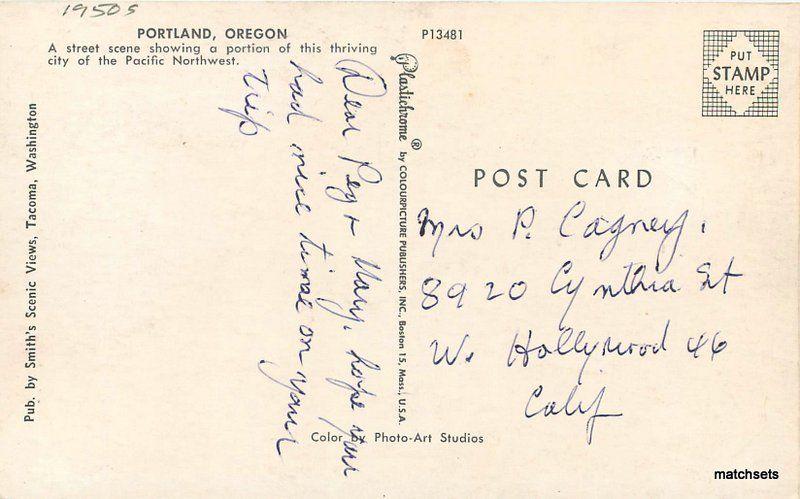 1950s
PORTLAND, OREGON
A street scene showing a portion of this thriving
city of the Pacific Northwest.
P13481
PUT
STAMP
HERE
Pub. by Smith's Scenic Views, Tacoma, Washington
Dear Peg + Mary, hope you
had nice time on your
trip
Plastichrome ® by COLOURPICTURE PUBLISHERS, INC., Boston 15, Mass., U.S.A.
POST CARD
Mrs P. Cagney,
8920 Cynthia St
W. Hollywood 46
Calif
Color by Photo-Art Studios
matchsets